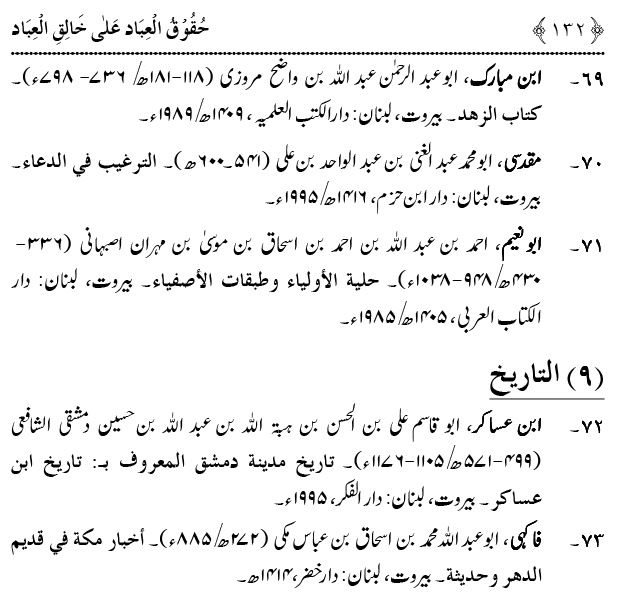 ﴿۱۳۲﴾ حُقُوْقُ الْعِبَاد عَلٰی خَالِقِ الْعِبَاد
۶۹۔ ابن مبارک، ابو عبد الرحمٰن عبد اللہ بن واضح مروزی (۱۱۸-۱۸۱ھ/ ۷۳۶- ۷۹۸ء)۔
کتاب الزهد۔ بیروت، لبنان: دار الکتب العلمیہ، ۱۴۰۹ھ/۱۹۸۹ء۔
۷۰۔ مقدسی، ابو محمد عبد الغنی بن عبد الواحد بن علی (۵۴۱۔۶۰۰ھ)۔ الترغیب في الدعاء۔
بیروت، لبنان: دار ابن حزم، ۱۴۱۶ھ/۱۹۹۵ء۔
۷۱۔ ابو نعیم، احمد بن عبد اللہ بن احمد بن اسحاق بن موسیٰ بن مہران اصبہانی (۳۳۶-
۴۳۰ھ/۹۴۸-۱۰۳۸ء)۔ حلیة الأولیاء وطبقات الأصفیاء۔ بیروت، لبنان: دار
الکتاب العربی، ۱۴۰۵ھ/۱۹۸۵ء۔
(۹) التاریخ
۷۲۔ ابن عساکر، ابو قاسم علی بن الحسن بن ہبۃ اللہ بن عبد اللہ بن حسین دمشقی الشافعی
(۴۹۹-۵۷۱ھ/۱۱۰۵-۱۱۷۶ء)۔ تاریخ مدینة دمشق المعروف بـ: تاریخ ابن
عساکر۔ بیروت، لبنان: دار الفکر، ۱۹۹۵ء۔
۷۳۔ فاکہی، ابو عبد اللہ محمد بن اسحاق بن عباس مکی (۲۷۲ھ/۸۸۵ء)۔ أخبار مکة في قدیم
الدهر وحدیثة۔ بیروت، لبنان: دار خضر، ۱۴۱۴ھ۔